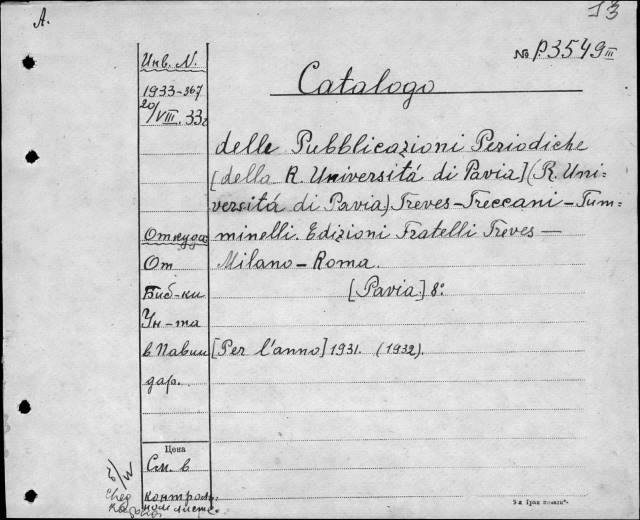 A.
13
№ P.3549 III
Инв. N.
1933-367
20/VIII. 33г
Catalogo
delle Pubblicazioni Periodiche
[della R. Universitá di Pavia] (R. Uni-
versitá di Pavia) Treves-Treccani-Tum-
minelli. Edizioni Fratelli Treves—
Milano-Roma.
[Pavia] 8°
[Per l'anno] 1931. (1932).
Откудова
От
Биб-ки
Ун-та
в Павии
дар.
Цена
См. в
контроль-
ном листе
б/и